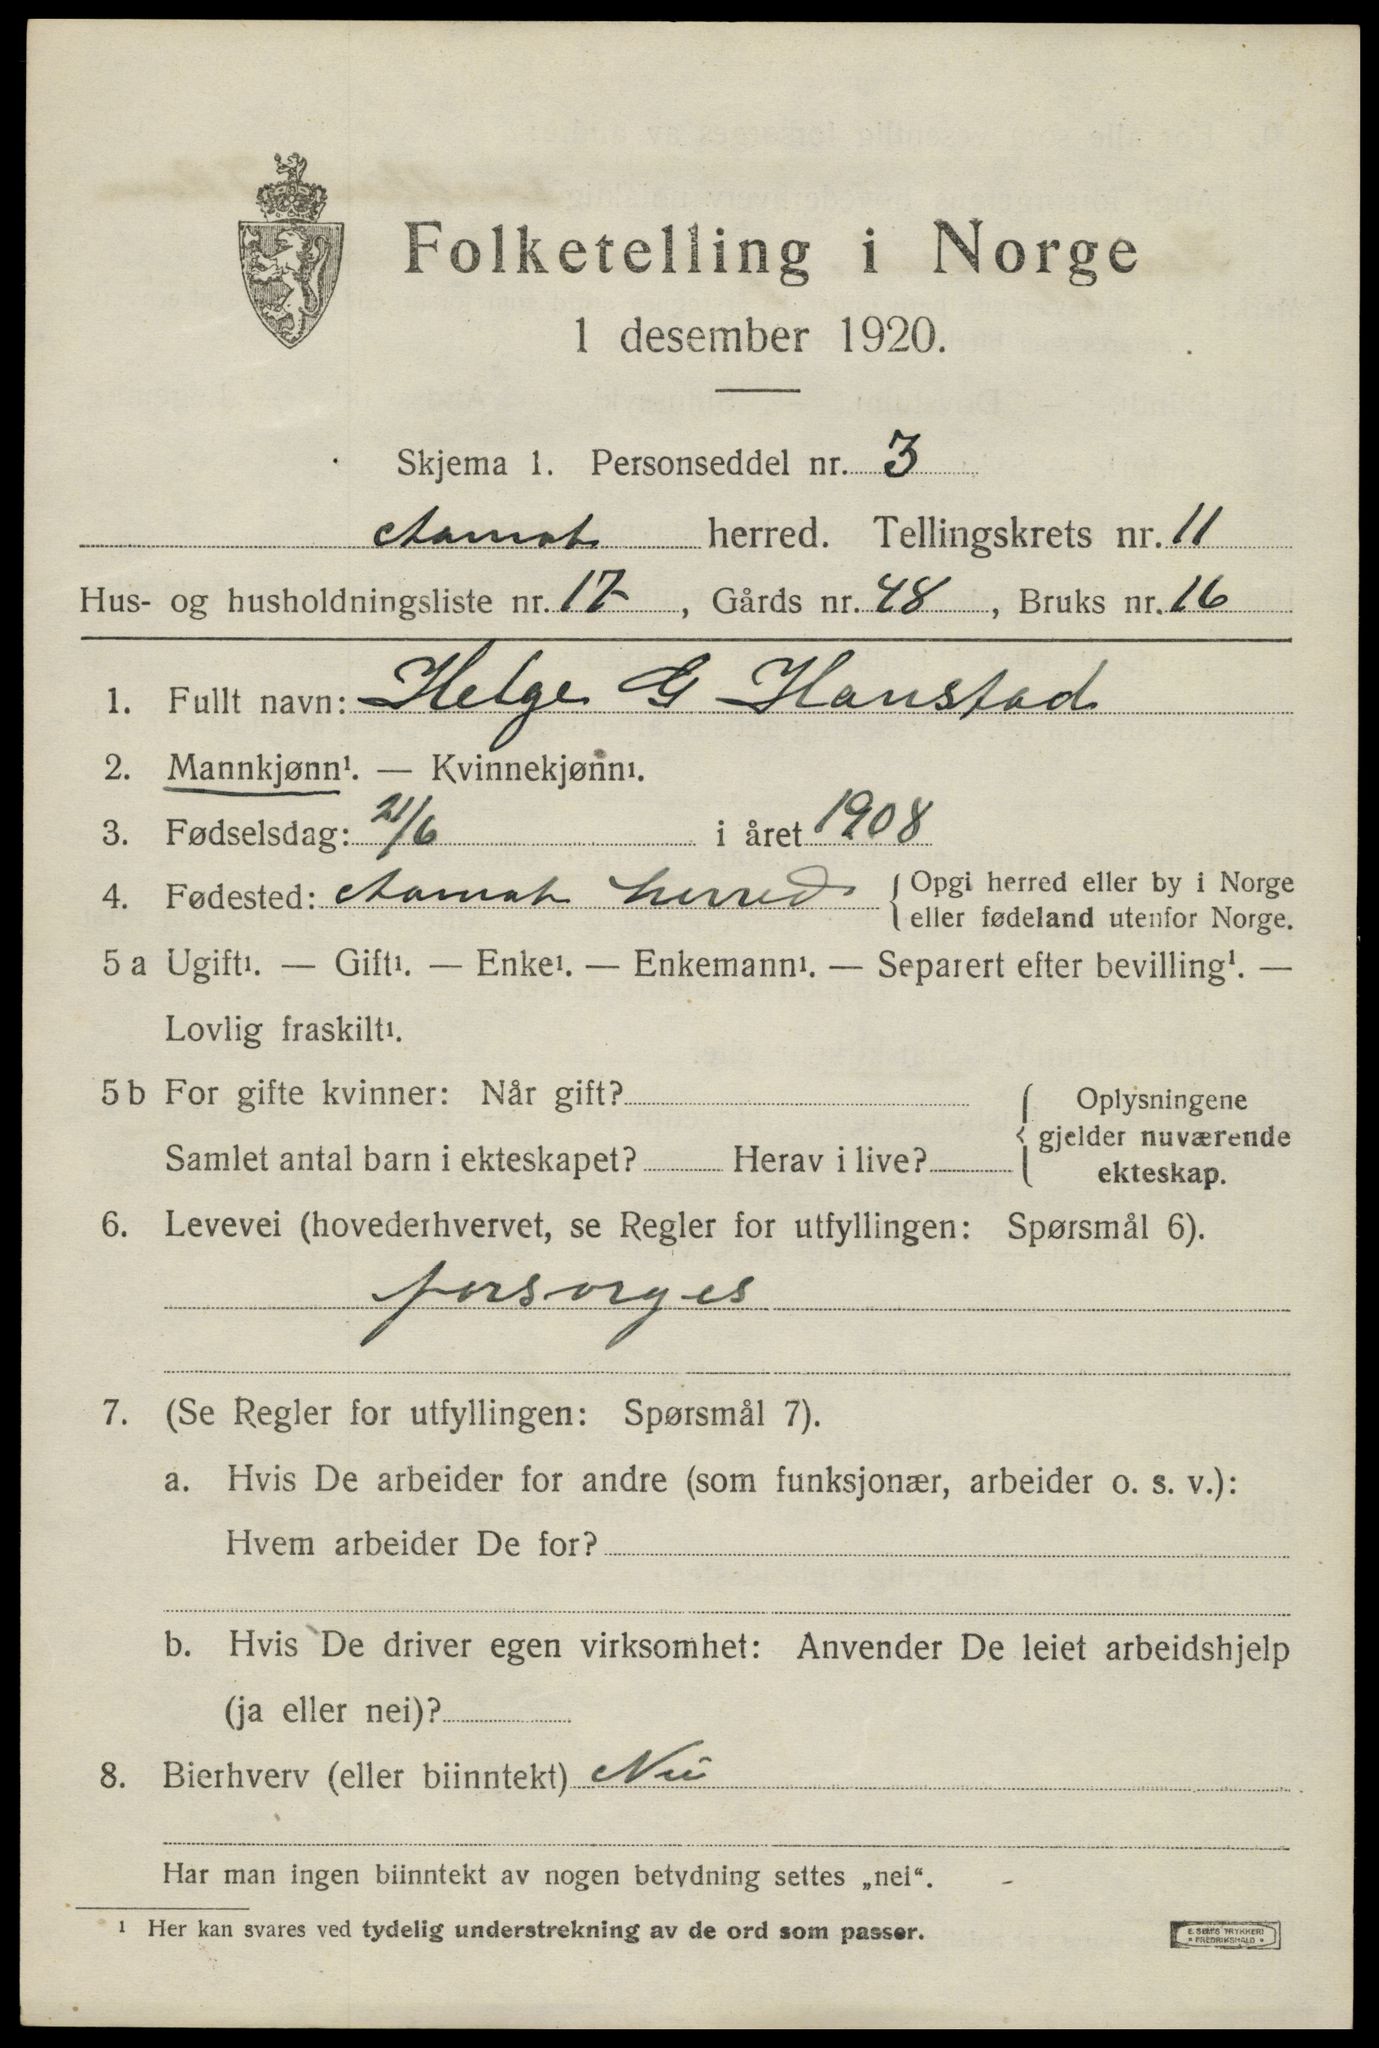 Folketelling i Norge
1 desember 1920.
Skjema 1. Personseddel nr. 3
Aamot herred. Tellingskrets nr. 11
Hus- og husholdningsliste nr. 17, Gårds nr. 48, Bruks nr. 16
1. Fullt navn: Helge G Hanstad
2. Mannkjønn¹. — Kvinnekjønn¹.
3. Fødselsdag: 21/6 i året 1908
4. Fødested: Aamot herred { Opgi herred eller by i Norge
eller fødeland utenfor Norge.
5 a Ugift¹. — Gift¹. — Enke¹. — Enkemann¹. — Separert efter bevilling¹. —
Lovlig fraskilt¹.
5 b For gifte kvinner: Når gift?
Samlet antal barn i ekteskapet? Herav i live?
{ Oplysningene
gjelder nuværende
ekteskap.
6. Levevei (hovederhvervet, se Regler for utfyllingen: Spørsmål 6).
forsorges
7. (Se Regler for utfyllingen: Spørsmål 7).
a. Hvis De arbeider for andre (som funksjonær, arbeider o. s. v.):
Hvem arbeider De for?
b. Hvis De driver egen virksomhet: Anvender De leiet arbeidshjelp
(ja eller nei)?
8. Bierhverv (eller biinntekt) Nei
Har man ingen biinntekt av nogen betydning settes „nei“.
¹ Her kan svares ved tydelig understrekning av de ord som passer.
E. SEM'S TRYKKERI
* FREDRIKSHALD *